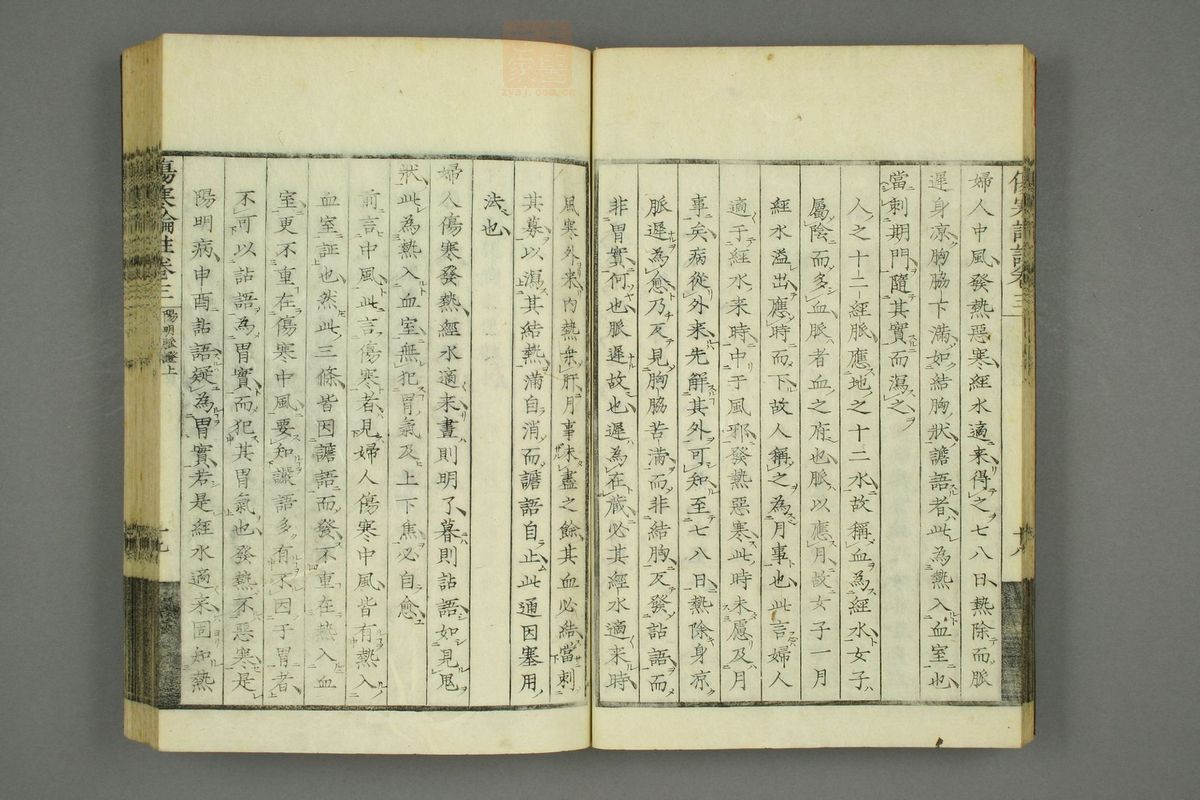 婦人中風發熱惡寒經水適來得之七八日熱除而脈
遲身凉胸脇下滿如結胸狀譫語者此為熱入血室也
當刺期門隨其實而瀉之
人之十二經脈應地之十二水故稱血為經水女子
屬陰而多血脈者血之府也脈以應月故女子一月
經水溢出應時而下故人稱之為月事也此言婦人
適于經水来時中于風邪發熱惡寒此時未慮及月
事矣病從外来先解其外可知至七八日熱除身凉
脈遲為愈乃反見胸脇苦滿而非結胸反發詀語而
非胃實何也脈遲故也遲為在蔵必其經水適来時
傷寒論註卷三
十八
風寒外来內熱乗肝月事未盡之餘其血必結當刺
其募以瀉其結熱滿自消而譫語自止此通因塞用
法也
婦人傷寒發熱經水適来晝則明了暮則詀語如見鬼
狀此為熱入血室無犯胃氣及上下焦必自愈
前言中風此言傷寒者見婦人傷寒中風皆有熱入
血室証也然此三條皆因譫語而發不重在熱入血
室更不重在傷寒中風要知譫語多有不因于胃者
不可以詀語為胃實而犯其胃氣也發熱不惡寒是
陽明病申酉詀語疑為胃實若是經水適来固知熱
傷寒論註卷三 陽明脈證上
十九
zysj.com.cn